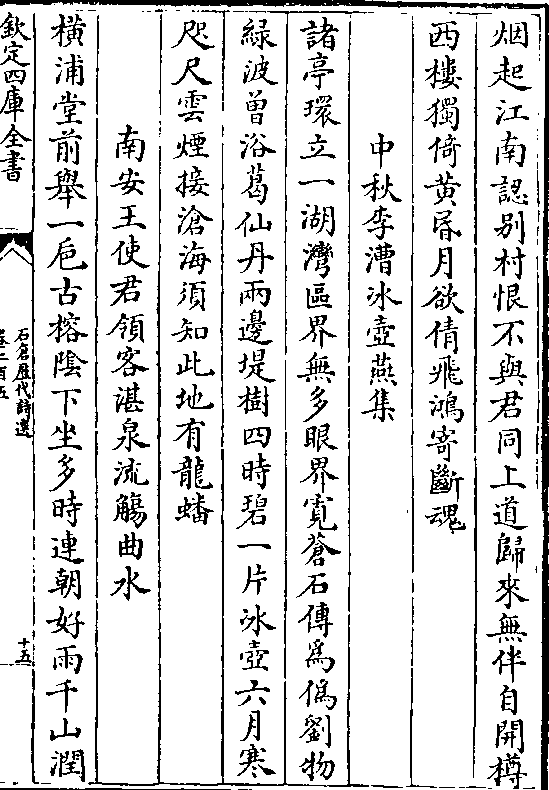 烟起江南認别村恨不與君同上道歸來無伴自開樽
西樓獨倚黄昏月欲倩飛鴻寄斷魂
中秋李漕冰壺燕集
諸亭環立一湖灣區界無多眼界寛蒼石傳爲僞劉物
緑波曾浴葛仙丹兩邊堤樹四時碧一片冰壺六月寒
咫尺雲煙接滄海須知此地有龍蟠
南安王使君領客湛泉流觴曲水
横浦堂前舉一巵古榕隂下坐多時連朝好雨千山潤
欽定四庫全書
石倉歴代詩選
卷二百五
十五